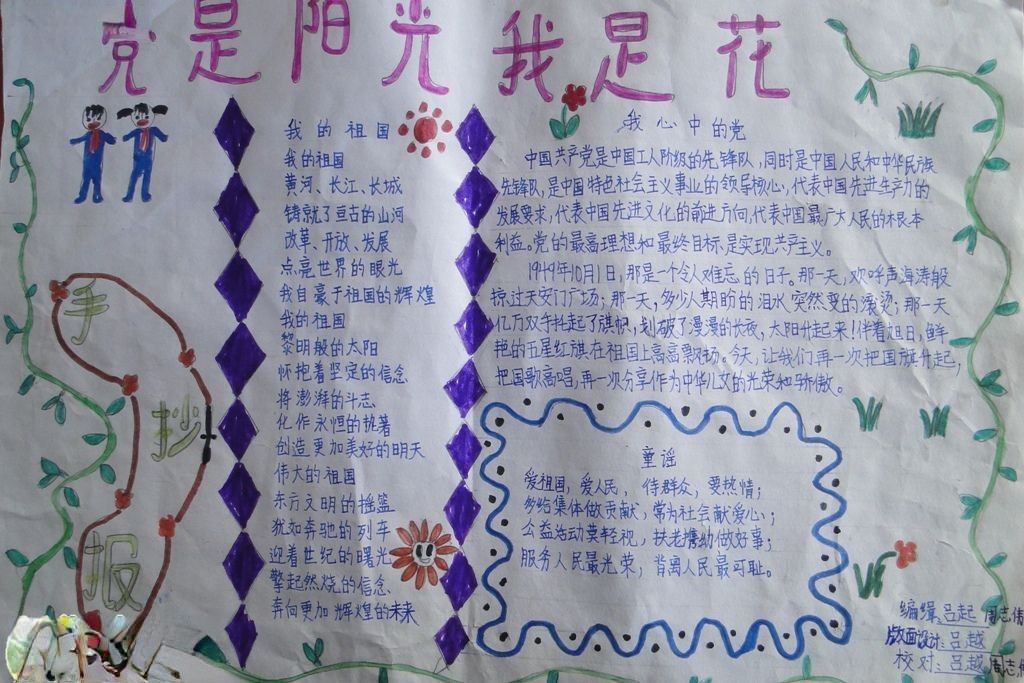 党是阳光我是花
手抄报
我的祖国
我的祖国
黄河、长江、长城
铸就了亘古的山河
改革、开放、发展
点亮世界的眼光
我自豪于祖国的辉煌
我的祖国
黎明般的太阳
怀抱着坚定的信念
将澎湃的斗志
化作永恒的执著
创造更加美好的明天
伟大的祖国
东方文明的摇篮
犹如奔驰的列车
迎着世纪的曙光
擎起燃烧的信念
奔向更加辉煌的未来
我心中的党
中国共产党是中国工人阶级的先锋队,同时是中国人民和中华民族
先锋队,是中国特色社会主义事业的领导核心,代表中国先进生产力的
发展要求,代表中国先进文化的前进方向,代表中国最广大人民的根本
利益。党的最高理想和最终目标是实现共产主义。
1949年10月1日,那是一个令人难忘的日子。那一天,欢呼声海涛般
掠过天安门广场;那一天,多少人期盼的泪水突然变的滚烫;那一天
亿万双手托起了旗帜,划破了漫漫的长夜,太阳升起来!伴着旭日,鲜
艳的五星红旗在祖国上高高飘扬。今天,让我们再一次把国旗升起,
把国歌高唱,再一次分享作为中华儿女的光荣和骄傲。
童谣
爱祖国,爱人民,待群众,要热情;
多给集体做贡献,常为社会献爱心;
公益活动莫轻视,扶老携幼做好事;
服务人民最光荣,背离人民最可耻。
编缉:吕起 周志伟
版面设计:吕越
校对:吕越 周志伟